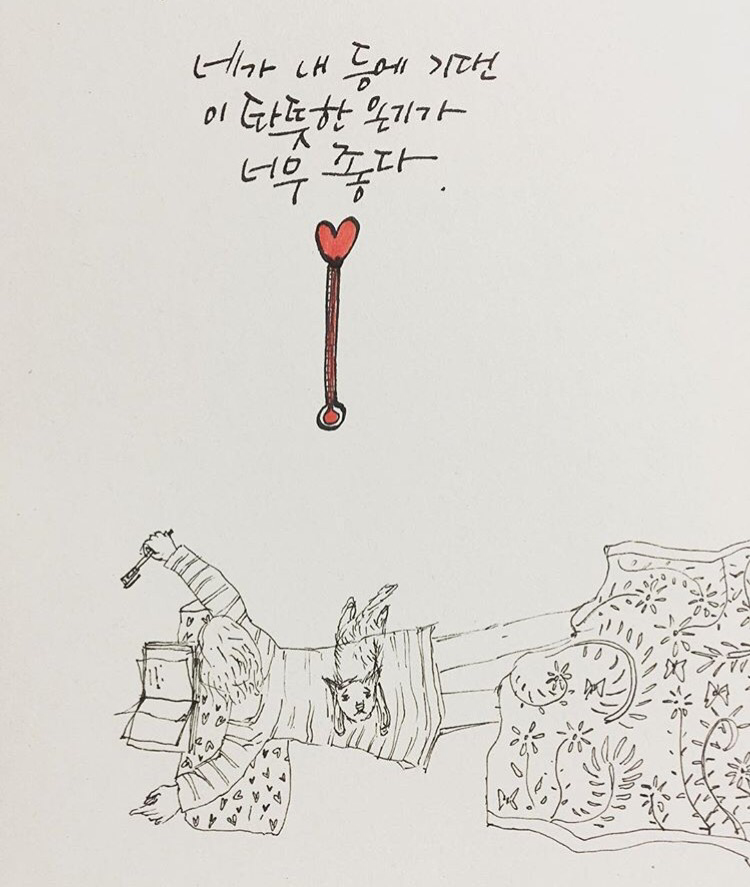 네가 내 등에 기댄
이 따뜻한 온기가
너무 좋다.